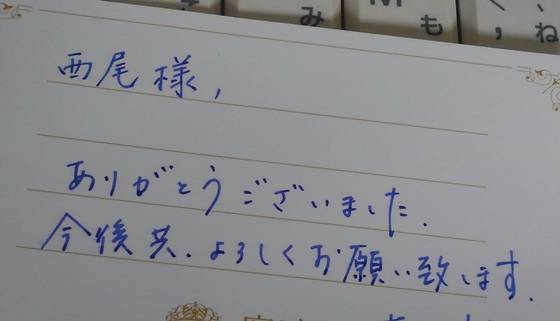 み
M
も
ね
西尾様,
ありがとうございました.
今後共.よろしくお願い致します.